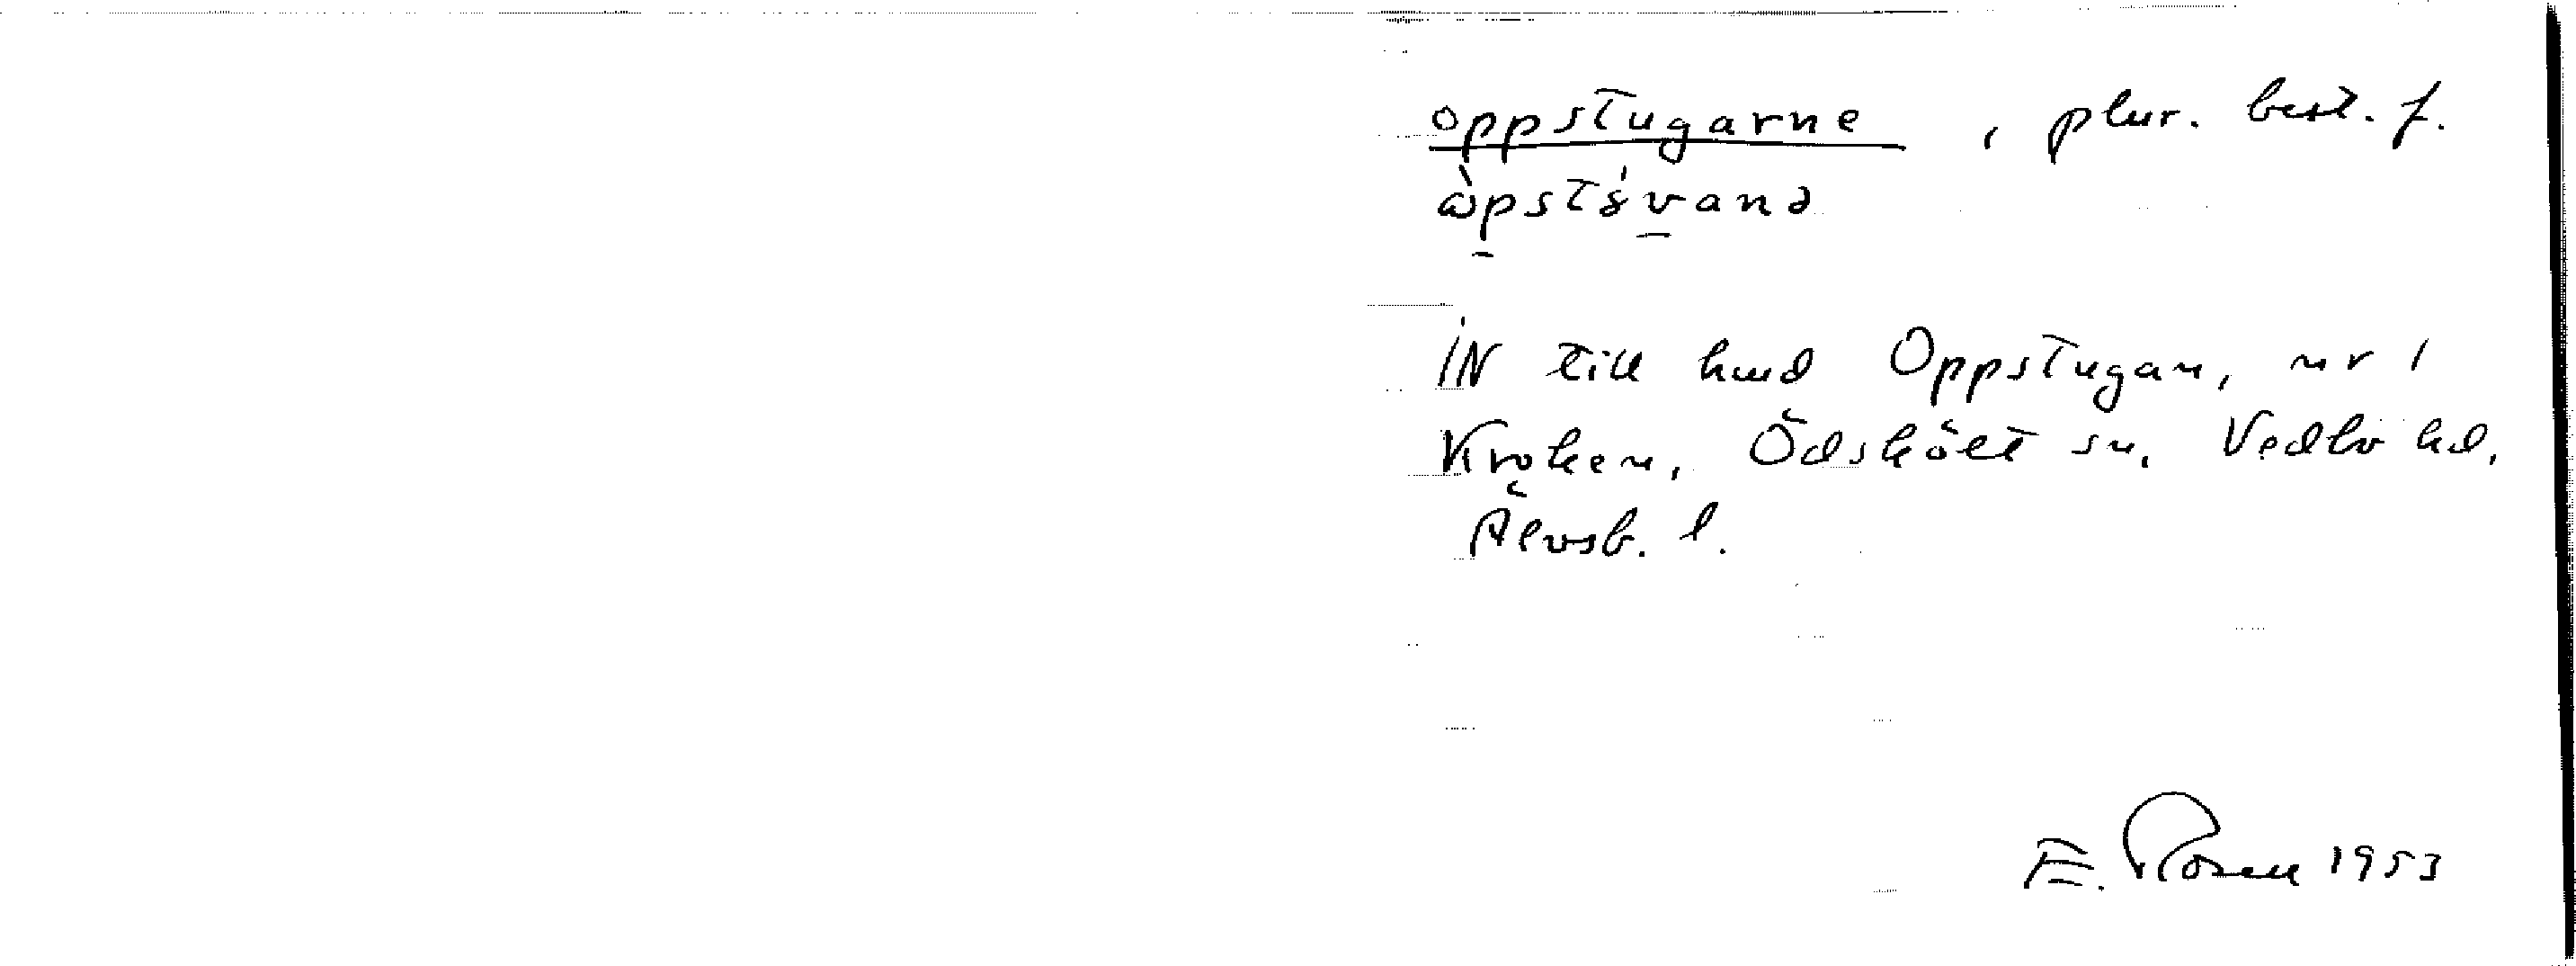 oppstugarne, plur. best. f.
IN till hmd Oppstugan, nr 1
Kroken, Ödskölt sn, Vedbo hd,
Älvsb. l.
E. Rosell 1953